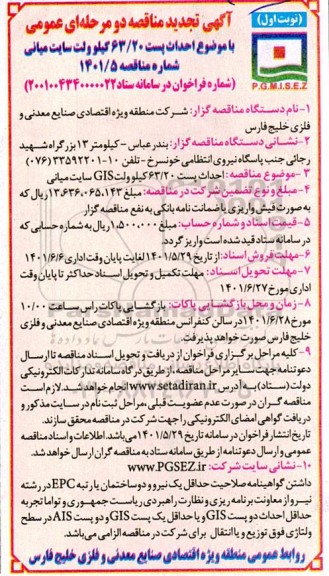 (نوبت اول)
P.G.M.I.S.E.Z
آگهی تجدید مناقصه دو مرحله‌ای عمومی
با موضوع احداث پست ۶۳/۲۰ کیلو ولت سایت میانی
شماره مناقصه ۱۴۰۱/۵
(شماره فراخوان در سامانه ستاد ۲۰۰۱۰۰۴۳۴۰۰۰۰۰۲۲)
۱-نام دستگاه مناقصه گزار: شرکت منطقه ویژه اقتصادی صنایع معدنی و
فلزی خلیج فارس
۲-نشانی دستگاه مناقصه گزار: بندرعباس - کیلومتر ۱۳ بزرگراه شهید
رجائی جنب پاسگاه نیروی انتظامی خونسرخ - تلفن ۱۰-۳۳۵۹۲۲۰۱ (۰۷۶)
۳-موضوع مناقصه: احداث پست ۶۳/۲۰ کیلو ولت GIS سایت میانی
۴-مبلغ و نوع تضمین شرکت در مناقصه: مبلغ ۱۳,۶۳۶,۰۶۵,۱۴۳ ریال که
به صورت فیش واریزی یا ضمانت نامه بانکی به نفع مناقصه گزار
۵-قیمت اسناد و شماره حساب: مبلغ ۱,۵۰۰,۰۰۰ ریال به شماره حسابی که
در سامانه ستاد قید شده است واریز گردد.
۶-مهلت فروش اسناد: از تاریخ ۱۴۰۱/۵/۲۹ لغایت پایان وقت اداری ۱۴۰۱/۶/۶
۷-مهلت تحویل اسناد: مهلت تکمیل و تحویل اسناد حداکثر تا پایان وقت
اداری مورخ ۱۴۰۱/۶/۲۷
۸-زمان و محل بازگشایی پاکات: بازگشایی پاکات راس ساعت ۱۰/۰۰
مورخ ۱۴۰۱/۶/۲۸ در سالن کنفرانس منطقه ویژه اقتصادی صنایع معدنی و فلزی
خلیج فارس صورت خواهد پذیرفت.
۹-کلیه مراحل برگزاری فراخوان از دریافت و تحویل اسناد مناقصه تا ارسال
دعوتنامه جهت سایر مراحل مناقصه، از طریق درگاه سامانه تدارکات الکترونیکی
دولت (ستاد) به آدرس www.setadiran.ir انجام خواهد شد. لازم است
مناقصه گران در صورت عدم عضویت قبلی، مراحل ثبت نام در سایت مذکور و
دریافت گواهی امضای الکترونیکی را جهت شرکت در مناقصه محقق سازند.
تاریخ انتشار فراخوان در سامانه تاریخ ۱۴۰۱/۵/۲۹ می‌باشد. اطلاعات و اسناد مناقصه
عمومی و ارسال دعوتنامه از طریق سامانه ستاد به مناقصه گران ارسال خواهد شد.
۱۰-نشانی سایت شرکت: www.PGSEZ.ir
داشتن گواهینامه صلاحیت حداقل یک نیرو و دو ساختمان یا رتبه EPC در رشته
نیرو از معاونت برنامه ریزی و نظارت راهبردی ریاست جمهوری و توام تجربه
حداقل احداث دو پست GIS و یا حداقل یک پست GIS و دو پست AIS در سطح
ولتاژی فوق توزیع و یا انتقال برای شرکت در مناقصه الزامی می باشد.
روابط عمومی منطقه ویژه اقتصادی صنایع معدنی و فلزی خلیج فارس